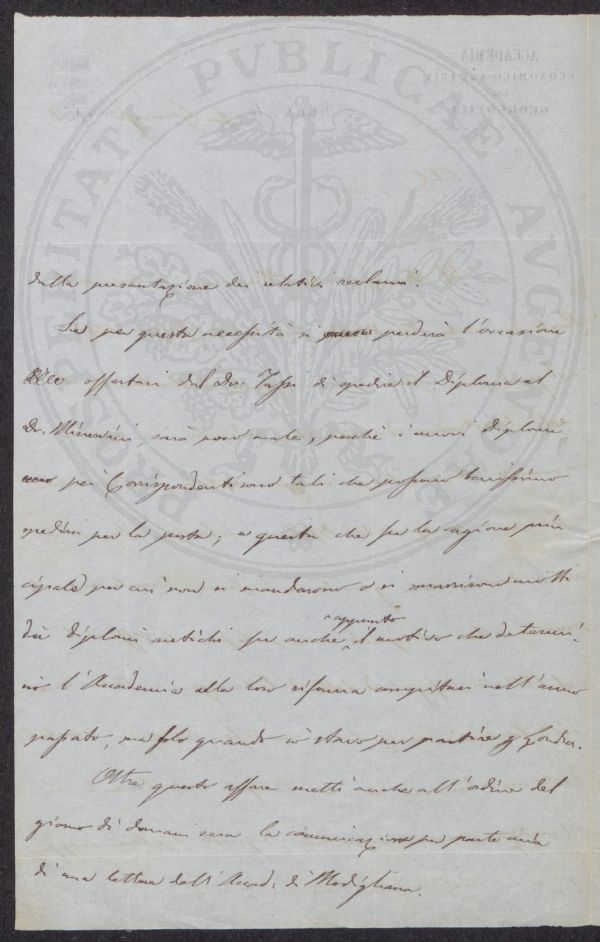 PROSPERITATI PUBLICAE AUGENDAE
ACCADEMIA
ECONOMICO-AGRARIA
DEI
GEORGOFILI
dalla presentazione dei relativi reclami.
Se per questa necessità si perderà l'occasione
offertasi dal Dr. Tassi di spedire il Diploma al
Dr. Minervini, sarà poco male, perchè i nuovi Diplomi
pei Corrispondenti sono tali che possono benissimo
spedirsi per la posta; e questa che fu la cagione prin
cipale per cui non si mandarono o si smarrirono molti
dei diplomi antichi fu anche appunto il motivo che determi-
nò l'Accademia alla loro riforma compitasi nell'anno
passato, ma solo quando io stavo per partire p Londra.
Oltre questo affare metti anche all'ordine del
giorno di domani sera la comunicazione per parte mia
di una lettera dell'Accad. di Modigliana.